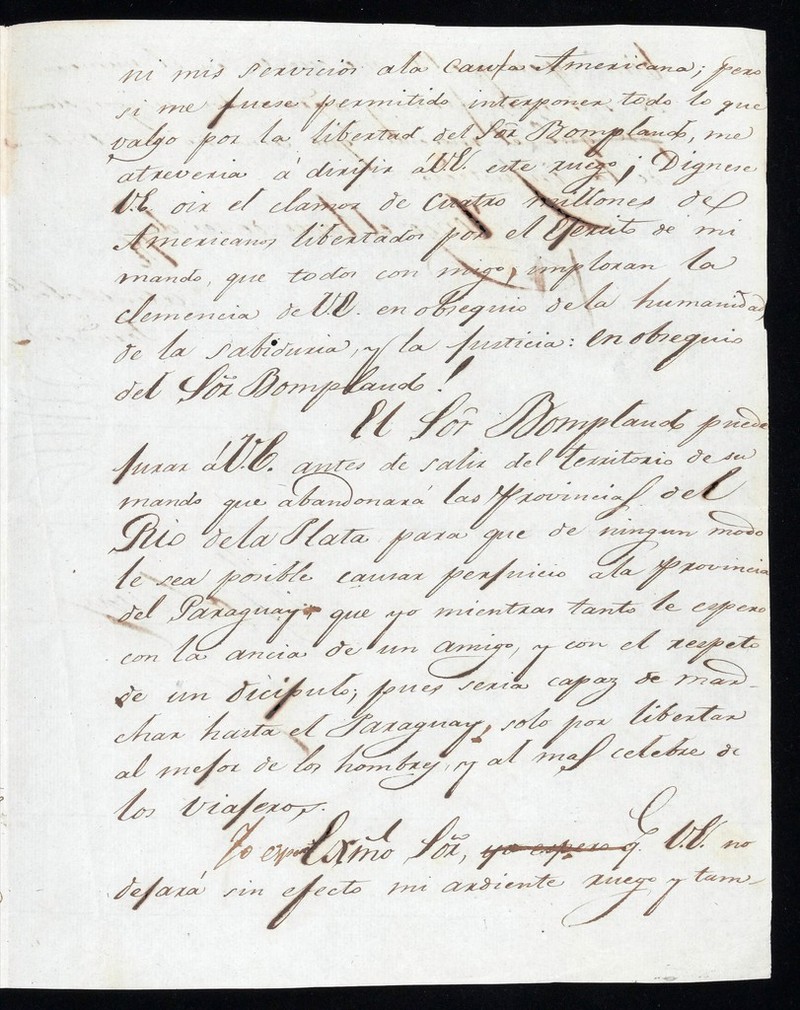 ni mis servicios ala Causa Americana; pero
si me fuese permitido interponer todo lo que
valgo por la libertad del Sōr Bompland, me
atreveria á dirijir á V.E. este ruego; Dignese
V.E. oir el clamor de Cuatro millones de
Americanos libertados por el Ejercito de mi
mando, que todos con migo, imploran la
clemencia de V.E. en obsequio de la humanidad
de la sabiduria, y la Justicia: en obsequio
del Sōr Bompland!
El Sōr Bompland puede
jurar á V.E. antes de salir del territorio de su
mando que abandonará las Provincias del
Rio dela Plata para que de ningun modo
le sea posible causar perjuicio ala Provincia
del Paraguay que yo mientras tanto le espero
con la ancia de un amigo, y con el respeto
de un dicipulo; pues seria capaz de mar-
char hasta el Paraguay, solo por libertar
al mejor de los hombres, y al mas celebre de
los viajeros.
Yo espero Exmō Sōr, yo espero q. V.E. no
dejará sin efecto mi ardiente ruego y tam-